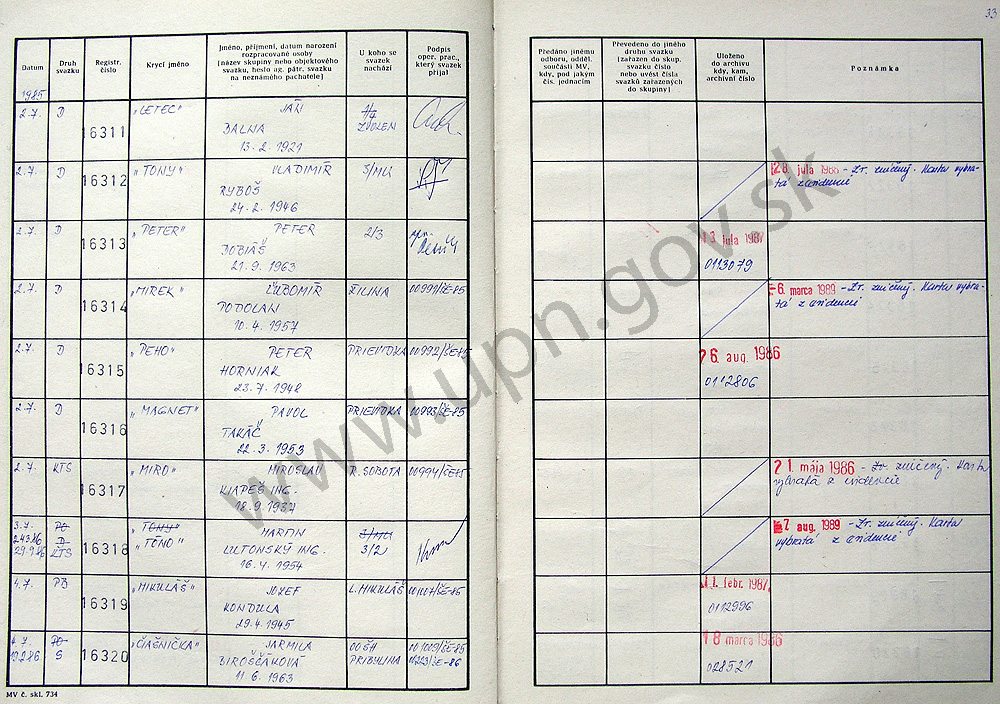 33
Datum
Druh svazku
Registr. číslo
Krycí jméno
Jméno, příjmení, datum narození
rozpracované osoby
(název skupiny nebo objektového
svazku, heslo ag. pátr. svazku
na neznámého pachatele)
U koho se
svazek
nachází
Podpis
oper. prac.,
který svazek
přijal
Předáno jinému
odboru, odděl.
součásti MV,
kdy, pod jakým
čís. jednacím
Převedeno do jiného
druhu svazku
(zařazen do skup.
svazku číslo
nebo uvést čísla
svazků zařazených
do skupiny)
Uloženo
do archivu
kdy, kam,
archivní číslo
Poznámka
1985
2.7. D 16311 „LETEC" JÁN
BALNA
13.2.1921
ZVOLEN
2.7. D 16312 „TONY" VLADIMÍR 3/MU
RYBOŠ
24.2.1946
28. júla 1988 - Zv. zničený. Karta vybra-
tá z evidencie
2.7. D 16313 „PETER" PETER 2/3
DOBIÁŠ
21.9.1963
13. júla 1987
0113079
2.7. D 16314 „MIREK" ĽUBOMÍR ŽILINA 00991/ŠE-85
PODOLAN
10.4.1957
-6. marca 1989 - Zv. zničený. Karta vybra-
tá z evidencie
2.7. D 16315 „PEHO" PETER PRIEVIDZA 00992/ŠE-85
HORNIAK
23.7.1948
26. aug. 1986
0112806
2.7. D 16316 „MAGNET" PAVOL PRIEVIDZA 00993/ŠE-85
TAKÁČ
22.3.1953
2.7. KTS 16317 „MIRO" MIROSLAV R. SOBOTA 00994/ŠE-85
KIAPEŠ ING.
18.9.1937
21. mája 1986 - Zv. zničený. Karta
vybratá z evidencie
3.7. PO 16318 „TONY" MARTIN 3/MU
24.3.86 D „TÓNO" LUTONSKÝ ING. 3/2
29.9.86 KTS 16.4.1954
7. aug. 1989 - Zv. zničený. Karta
vybratá z evidencie
4.7. PB 16319 „MIKULÁŠ" JOZEF L. MIKULÁŠ 01007/ŠE-85
KONDULA
29.4.1945
11. febr. 1987
0112996
4.7. PO 16320 „ČIAŠNIČKA" JARMILA OO ŠH 01009/ŠE-85
S BIROŠČÁKOVÁ PRIBYLINA
11.6.1963
18 marca 1986
028521
MV č. skl. 734
www.upn.gov.sk